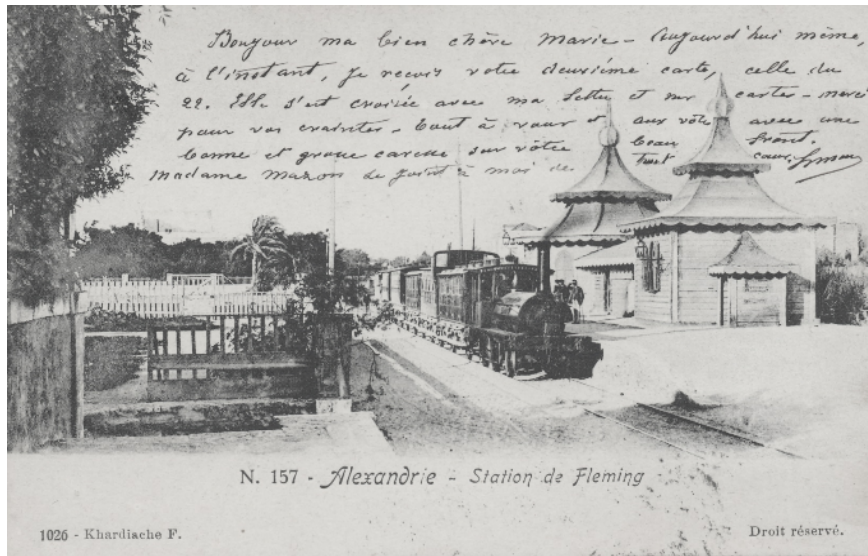 Bonjour ma bien chère Marie - Aujourd'hui même,
à l'instant, je reçois votre deuxième carte, celle du
22. Elle s'est croisée avec ma lettre et mes cartes - merci
pour vos craintes - tout à vous et aux vôtres avec une
bonne et grosse caresse sur vôtre beau front.
Madame Mazon se joint à moi de tout cœur,
N. 157 - Alexandrie - Station de Fleming
1026 - Khardiache F.
Droit réservé.